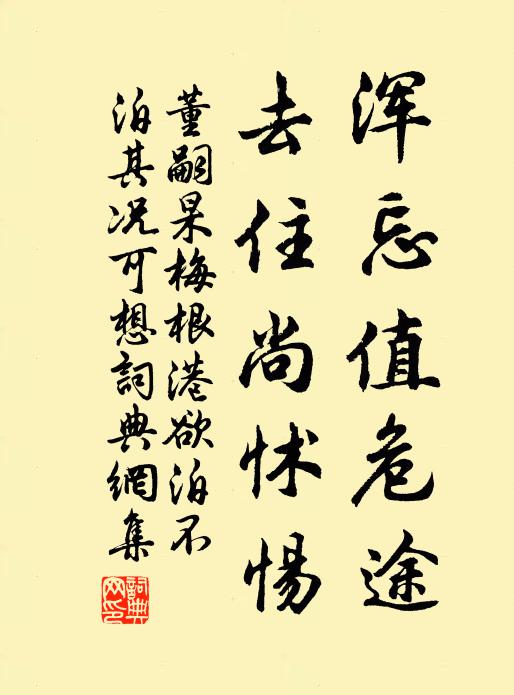 浑忘值危途
去住尚怵惕
董嗣杲梅根港欲泊不
泊其况可想詞典網集